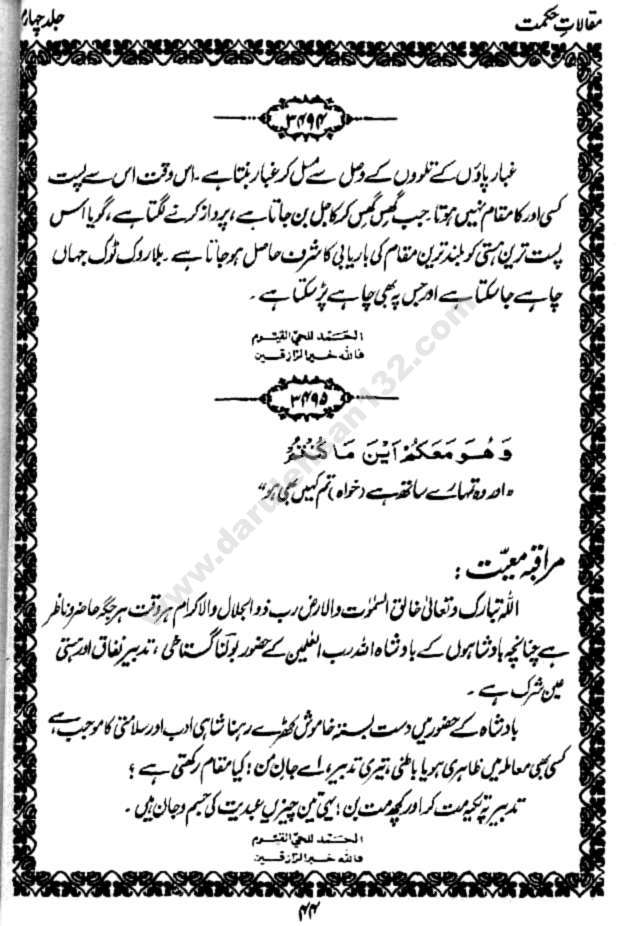 مقالاتِ حکمت
جلد چہارم
۳۴۹۴
غبار پاؤں کے تلووں کے وصل سے مسل کر غبار بنتا ہے۔ اس وقت اس سے پست
کسی اور کا مقام نہیں ہوتا۔ جب گھس گھس کر کاجل بن جاتا ہے، پرواز کرنے لگتا ہے، گویا اس
پست ترین ہستی کو بلند ترین مقام کی باریابی کا شرف حاصل ہو جاتا ہے۔ بلا روک ٹوک جہاں
چاہے جا سکتا ہے اور جس پہ بھی چاہے پڑ سکتا ہے۔
الحمد للحی القیوم
فاللہ خیر الرازقین
۳۴۹۵
وَهُوَ مَعَكُمْ اَيْنَ مَا كُنْتُمْ
"اور وہ تمہارے ساتھ ہے (خواہ) تم کہیں بھی ہو"
مراقبۂ معیّت :
اللہ تبارک و تعالیٰ خالق السمٰوٰت والارض رب ذوالجلال والاکرام ہر وقت ہر جگہ حاضر و ناظر
ہے چنانچہ بادشاہوں کے بادشاہ اللہ رب العٰلمین کے حضور بولنا گستاخی، تدبیر نفاق اور ہستی
عین شرک ہے۔
بادشاہ کے حضور میں دست بستہ خاموش کھڑے رہنا شاہی ادب اور سلامتی کا موجب ہے
کسی بھی معاملہ میں ظاہری ہو یا باطنی، تیری تدبیر، اے جانِ من! کیا مقام رکھتی ہے؟
تدبیر پہ تکیہ مت کر اور کچھ مت بن؛ یہی تین چیزیں عبدیت کی جسم و جان ہیں۔
الحمد للحی القیوم
فاللہ خیر الرازقین
۴۴
www.darulehsan132.com